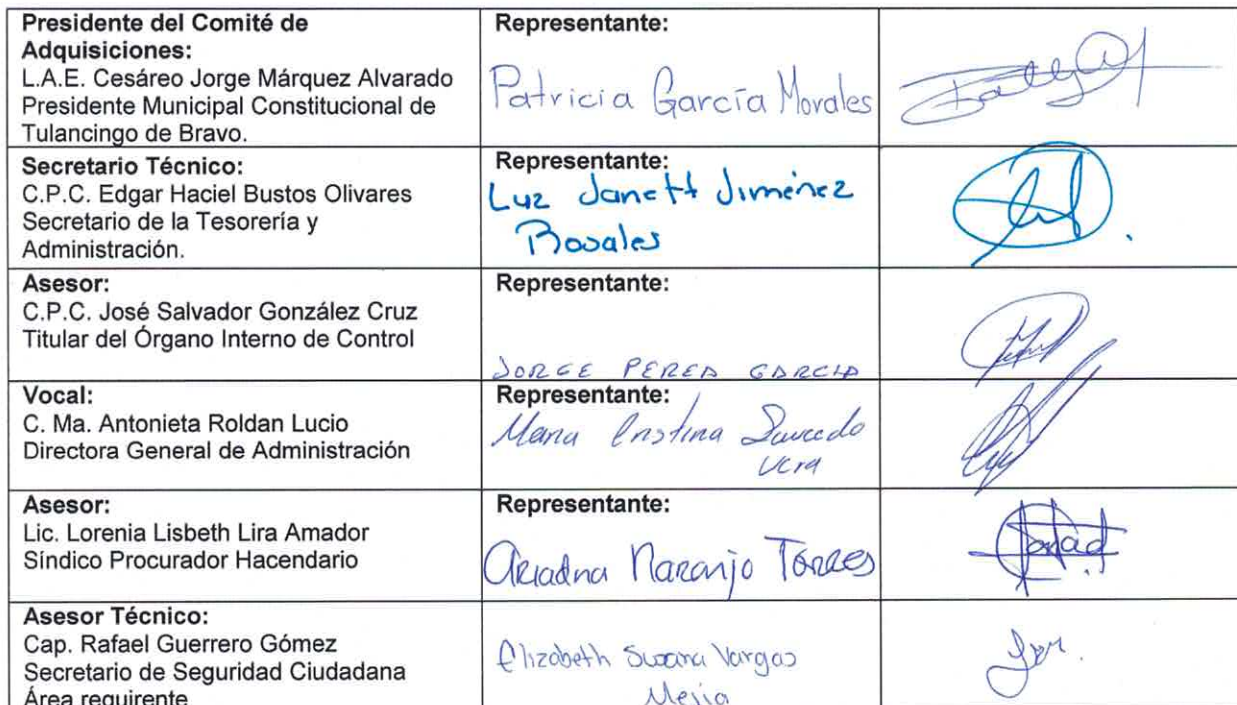 Presidente del Comité de
Adquisiciones:
L.A.E. Cesáreo Jorge Márquez Alvarado
Presidente Municipal Constitucional de
Tulancingo de Bravo.
Representante:
Patricia García Morales
Secretario Técnico:
C.P.C. Edgar Haciel Bustos Olivares
Secretario de la Tesorería y
Administración.
Representante:
Luz Janett Jiménez
Rosales
Asesor:
C.P.C. José Salvador González Cruz
Titular del Órgano Interno de Control
Representante:
JORGE PEREA GARCIA
Vocal:
C. Ma. Antonieta Roldan Lucio
Directora General de Administración
Representante:
Maria Cristina Saucedo
Vera
Asesor:
Lic. Lorenia Lisbeth Lira Amador
Síndico Procurador Hacendario
Representante:
Ariadna Naranjo Torres
Asesor Técnico:
Cap. Rafael Guerrero Gómez
Secretario de Seguridad Ciudadana
Área requirente
Elizabeth Vargas
Mejia